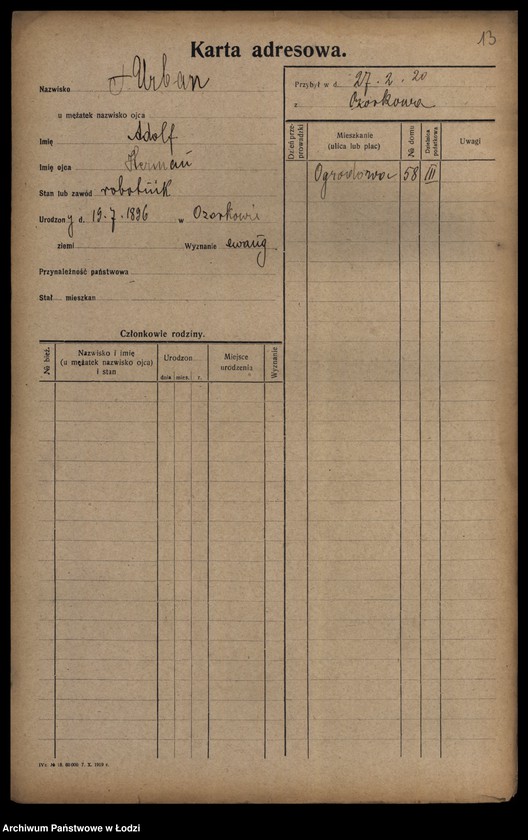 13
Karta adresowa.
Nazwisko Urban
u mężatek nazwisko ojca
Imię Adolf
Imię ojca Herman
Stan lub zawód robotnik
Urodzony d. 19.7.1896 w Ozorkowie
ziemi Wyznanie ewang
Przynależność państwowa
Stał. mieszkan.
Przybył w d. 27.2.20
z Ozorkowa
Dzień przeprowadzki
Mieszkanie
(ulica lub plac)
№ domu
Dzielnica
podatkowa
Uwagi
Ogrodowa 58 III
Członkowie rodziny.
№ bież.
Nazwisko i imię
(u mężatek nazwisko ojca)
i stan
Urodzon.
dnia mies. r.
Miejsce
urodzenia
Wyznanie
Archiwum Państwowe w Łodzi